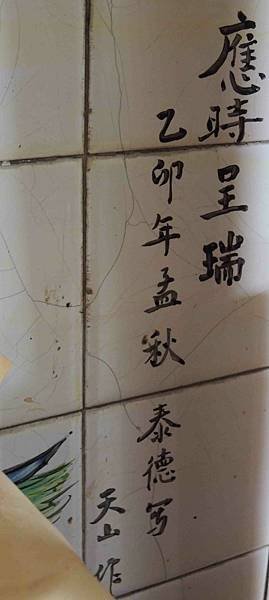 應時呈瑞
乙卯年孟秋
泰德写
天山作